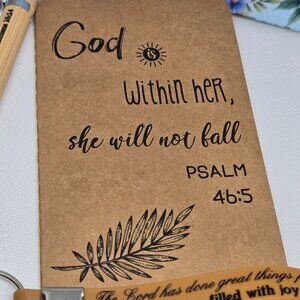 God is
within her,
she will not fall
PSALM
46:5
The Lord has done great things
filled with joy